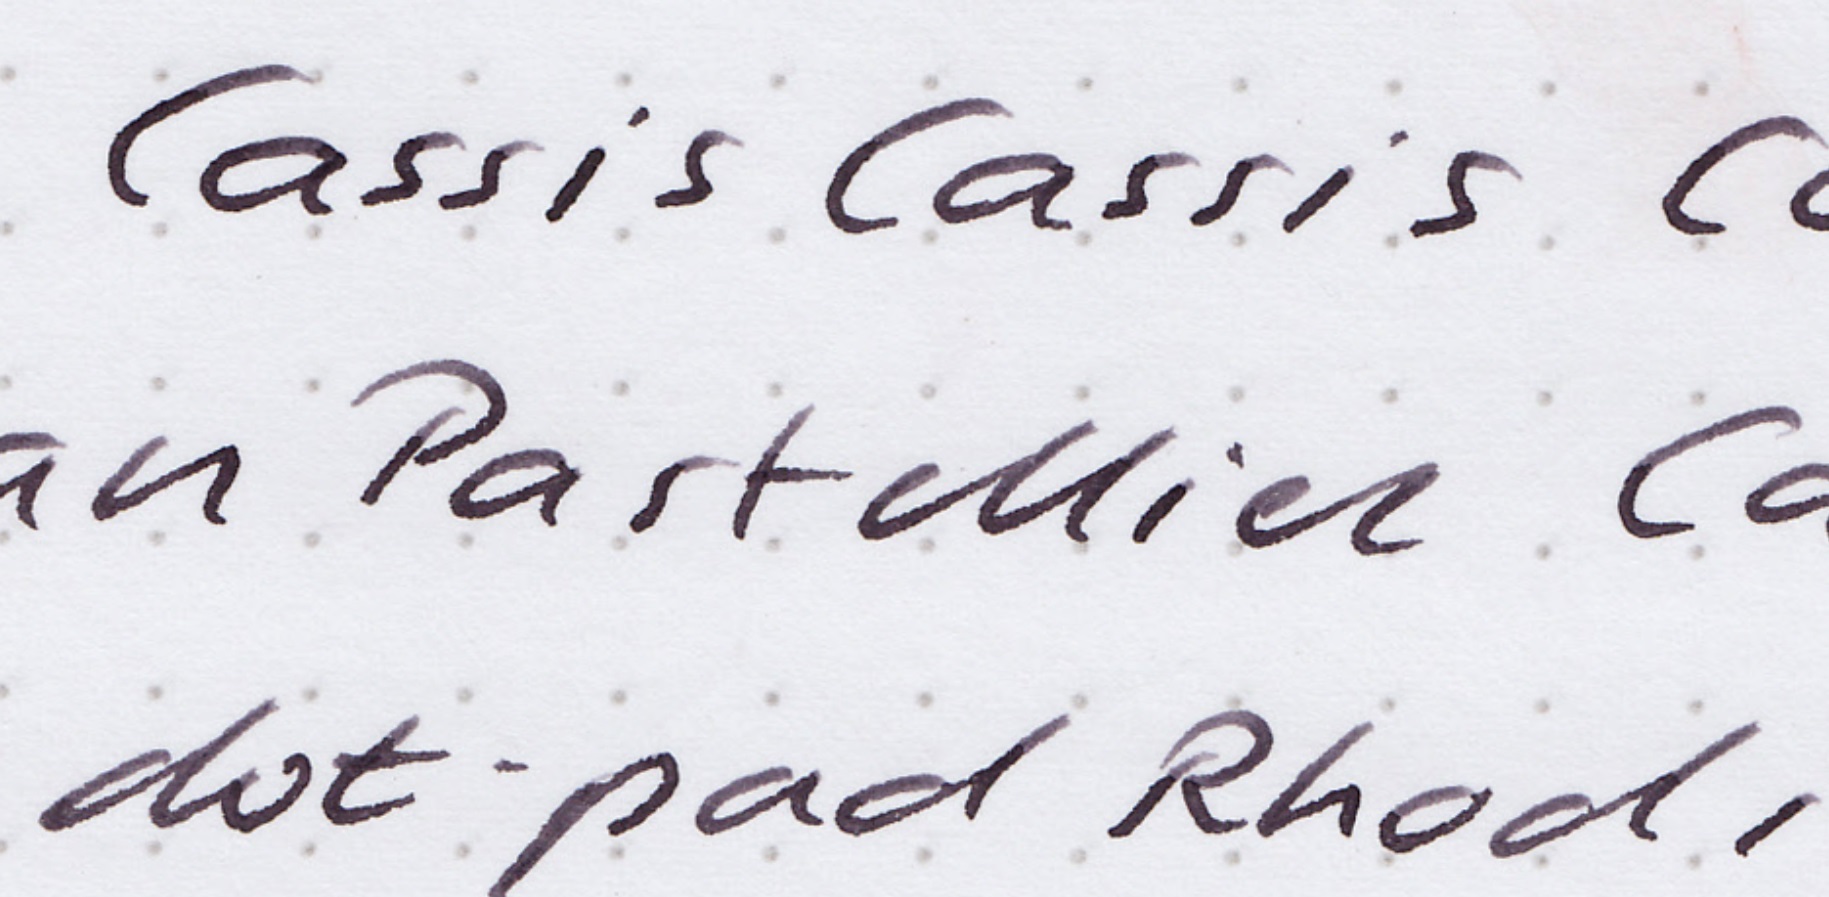 Cassis Cassis Ca
an Pastellier Ca
dot-pad Rhodi